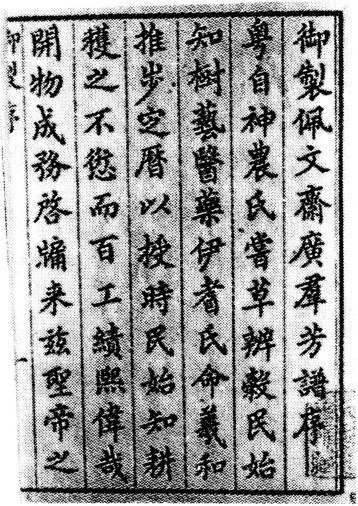 御製佩文齋廣羣芳譜序
粤自神農氏嘗草辨穀民始
知樹藝醫藥伊耆氏命羲和
推步定曆以授時民始知耕
穫之不愆而百工績熙偉哉
開物成務啓牖来兹聖帝之
御製序